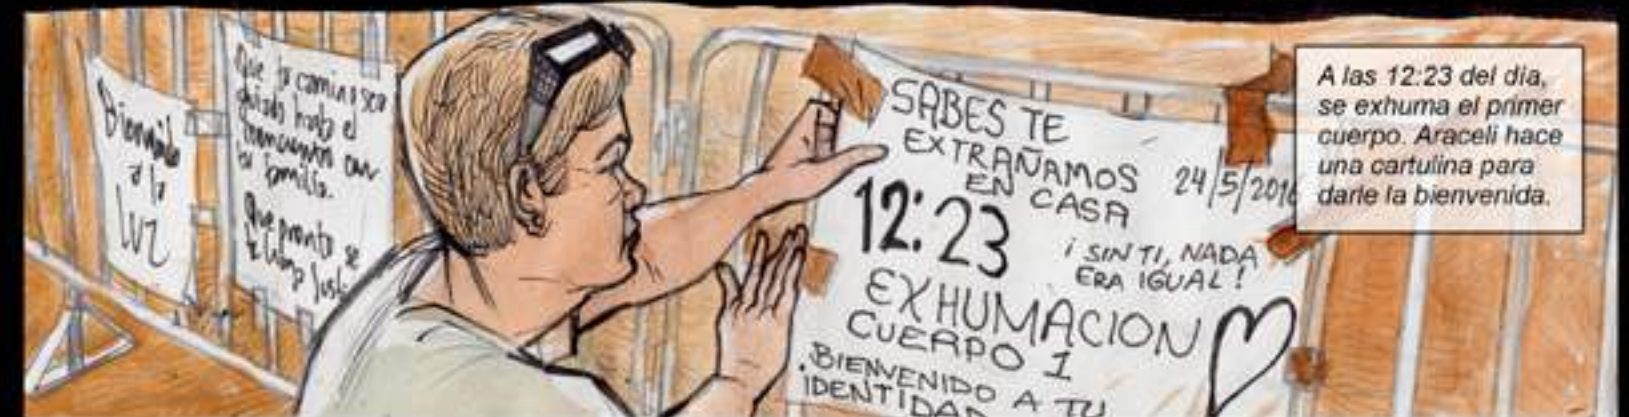 Bienvenido
a la
luz
Que tu camino sea
guiado hasta el
con
tu familia.
Que pronto se
te haga Just
SABES TE
EXTRAÑAMOS
EN
CASA
24/5/2016
12:23
¡SIN TI, NADA
ERA IGUAL!
EXHUMACION
CUERPO 1
.BIENVENIDO A TU
IDENTIDAD
A las 12:23 del día,
se exhuma el primer
cuerpo. Araceli hace
una cartulina para
darle la bienvenida.